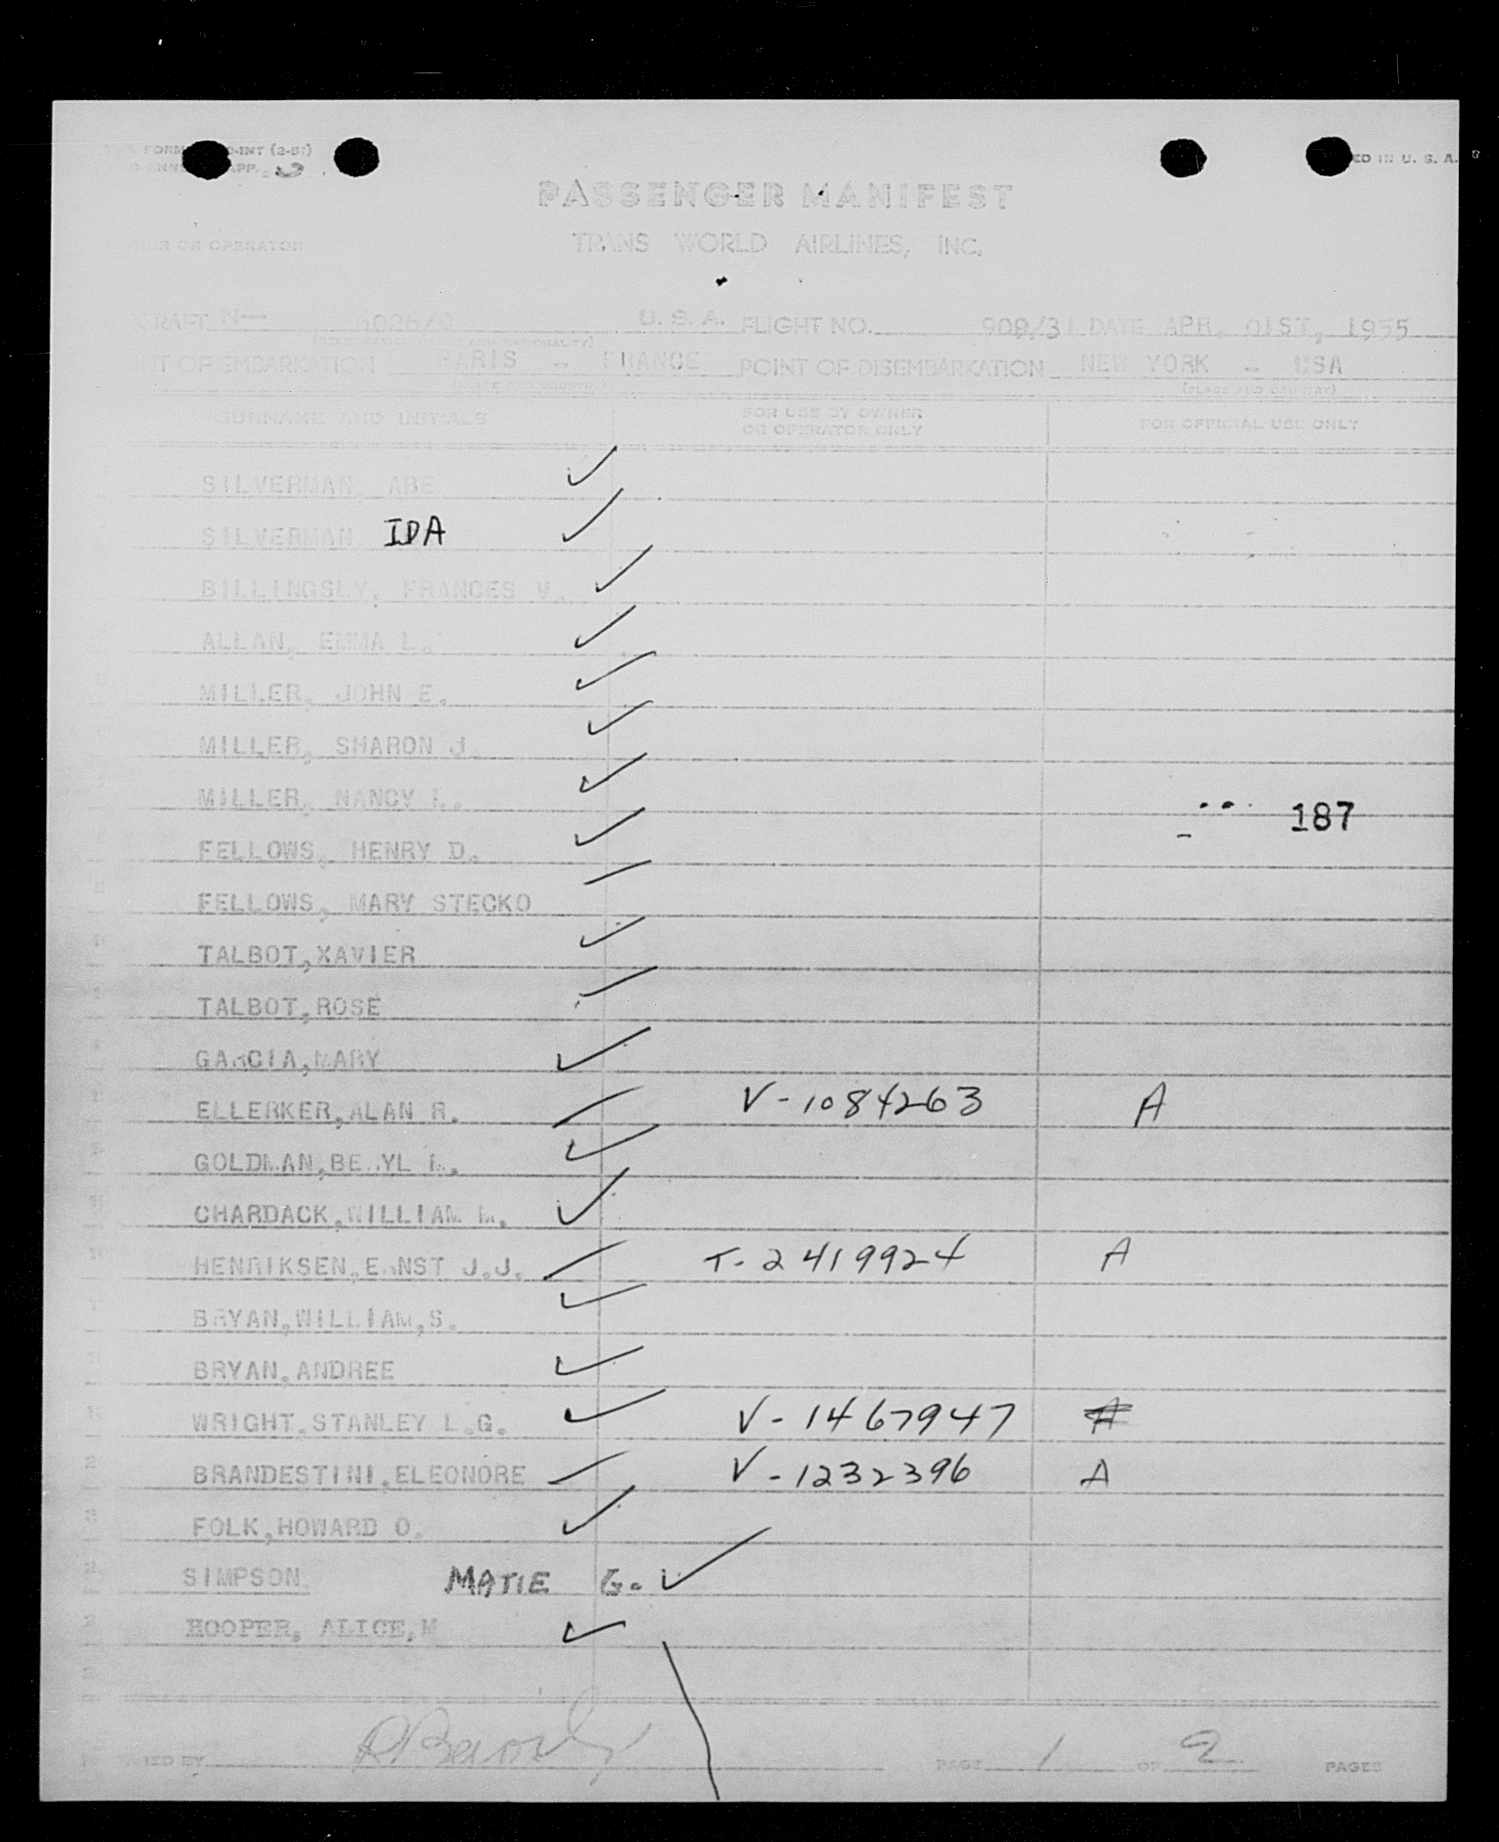 FORM INT (2-5
APP.
ED IN U. S. A.
PASSENGER MANIFEST
OR OPERATOR
TRANS WORLD AIRLINES, INC.
N— U. S. A. FLIGHT NO. 908/31 DATE APR. 01ST, 1955
NT OF EMBARKATION PARIS - FRANCE POINT OF DISEMBARKATION NEW YORK - USA
(PLACE AND COUNTRY)
SURNAME AND INITIALS FOR USE BY OWNER OR OPERATOR ONLY FOR OFFICIAL USE ONLY
SILVERMAN, ABE ✓
SILVERMAN IDA ✓
BILLINGSLY, FRANCES V. ✓
ALLAN, EMMA L. ✓
MILLER, JOHN E. ✓
MILLER, SHARON J. ✓
MILLER, NANCY L. ✓ 187
FELLOWS, HENRY D. ✓
FELLOWS, MARY STECKO
TALBOT,XAVIER ✓
TALBOT,ROSE ✓
GARCIA,MARY ✓
ELLERKER,ALAN R. V-1084263 A
GOLDMAN,BERYL M. ✓
CHARDACK,WILLIAM M. ✓
HENRIKSEN,ERNST J.J. T-2419924 A
BRYAN,WILLIAM,S. ✓
BRYAN,ANDREE ✓
WRIGHT,STANLEY L.G. ✓ V-1467947 A
BRANDESTINI,ELEONORE V-1232396 A
FOLK,HOWARD O. ✓
SIMPSON MATIE G. ✓
HOOPER, ALICE,M ✓
ED BY PAGE 1 OF 2 PAGES